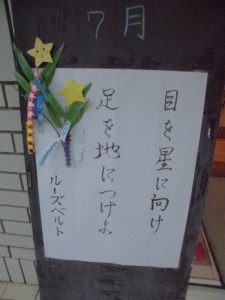 7月
目を星に向け
足を地につけよ
ルーズベルト